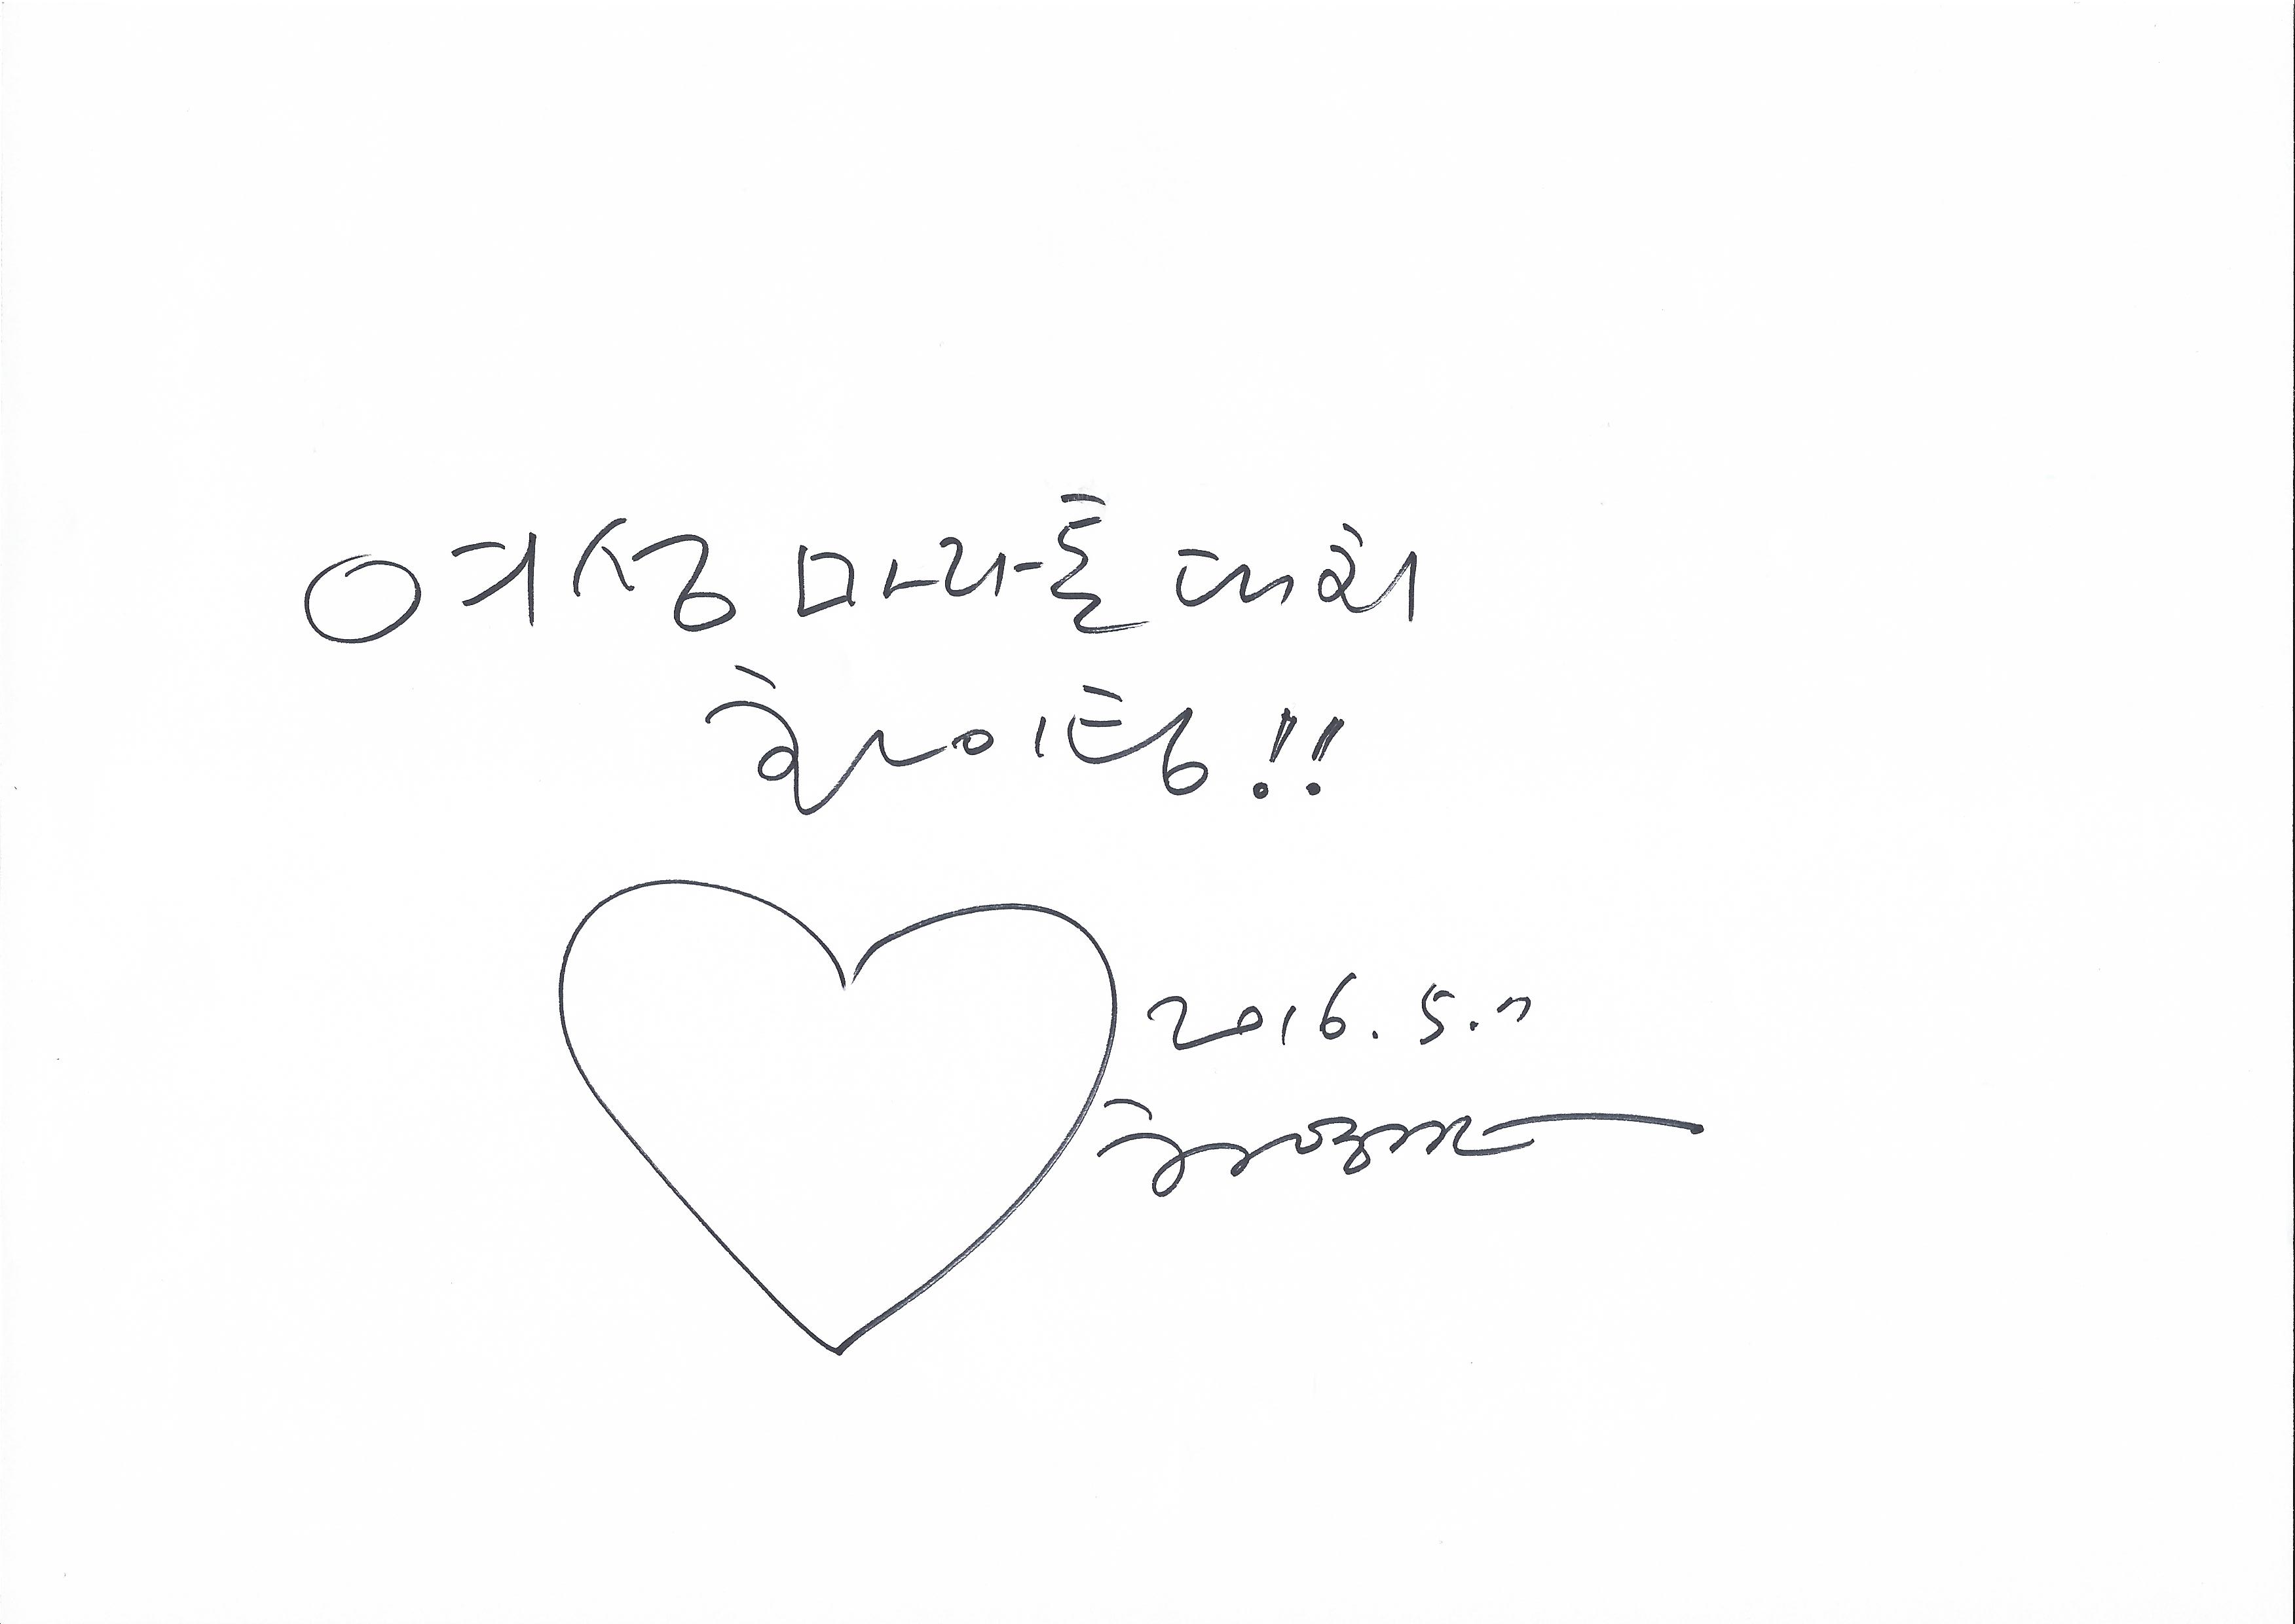 여성 마라톤 대회
화이팅!!
2016. 5. 7